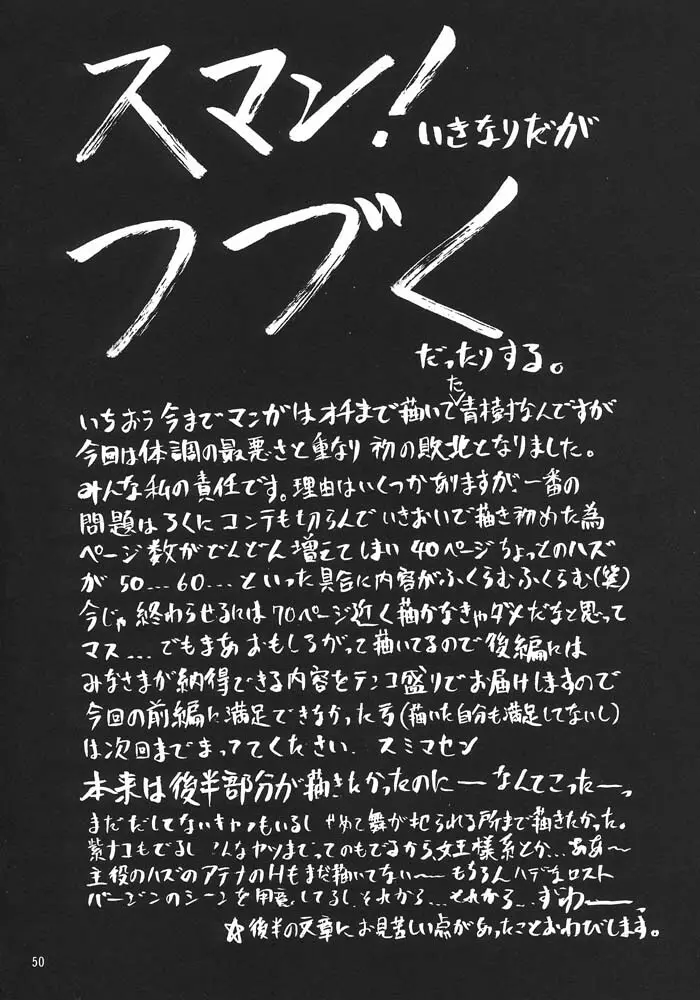 スマン!いきなりだが
つづく
だったりする。
いちおう今までマンガはオチまで描いてた青樹村なんですが
今回は体調の最悪さと重なり 初の敗北となりました。
みんな私の責任です。理由はいくつかありますが一番の
問題はろくにコンテも切らんでいきおいで描き初めた為
ページ数がどんどん増えてしまい 40ページちょっとのハズ
が50…60…といった具合に内容がふくらむふくらむ(笑)
今じゃ終わらせるには70ページ近く描かなきゃダメだなと思って
マス…でもまあおもしろがって描いてるので後編には
みなさまが納得できる内容をテンコ盛りでお届けしますので
今回の前編に満足できなかった方(描いた自分も満足してないし)
は次回までまっててください. スミマセン
本来は後半部分が描きたかったのにーなんてこったーっ
まだだしてないキャラもいるし やめて舞が犯られる所まで描きたかった。
紫ナコもでるし こんなヤツまでってのもでるから女王様系とか…ああ〜
主役のハズのアテナのHもまだ描いてない〜もちろんハデなロスト
バージンのシーンを用意してるしそれから…それから…ずわーーっ
☆後半の文章にお見苦しい点があったことおわびします。
50